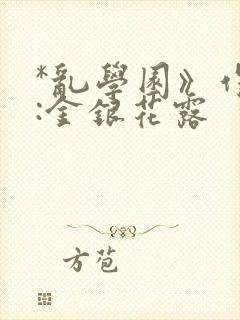 *亂學園》作
:金銀花露
方苞